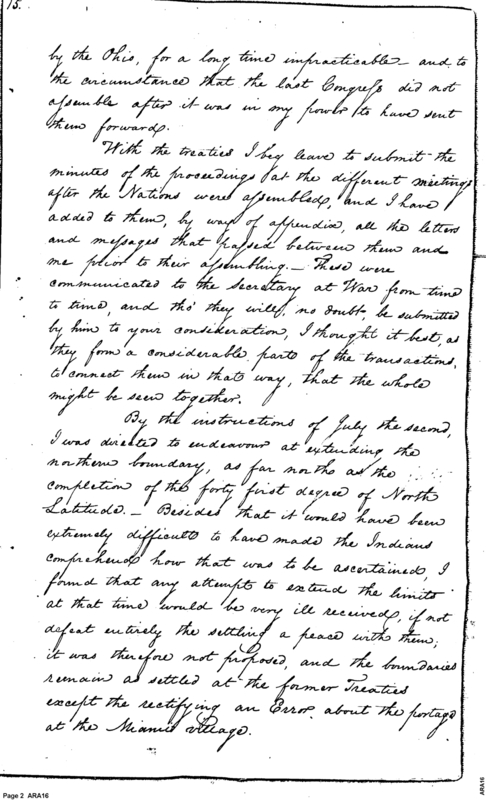 15.
by the Ohio, for a long time impracticable and to
the circumstance that the last Congress did not
assemble after it was in my power to have sent
them forward.
With the treaties I beg leave to submit the
minutes of the proceedings at the different meetings
after the Nations were assembled, and I have
added to them, by way of appendix, all the letters
and messages that passed between them and
me prior to their assembling. — These were
communicated to the Secretary at War from time
to time, and tho' they will, no doubt be submitted
by him to your consideration, I thought it best, as
they form a considerable part of the transactions,
to connect them in that way, that the whole
might be seen together.
By the instructions of July the second,
I was directed to endeavour at extending the
northern boundary, as far north as the
completion of the forty first degree of North
Latitude. — Besides that it would have been
extremely difficult to have made the Indians
comprehend how that was to be ascertained, I
found that any attempt to extend the limits
at that time would be very ill received, if not
defeat entirely the settling a peace with them;
it was therefore not proposed, and the boundaries
remain as settled at the former Treaties
except the rectifying an Error about the portage
at the Miami village.
Page 2 ARA16
ARA16